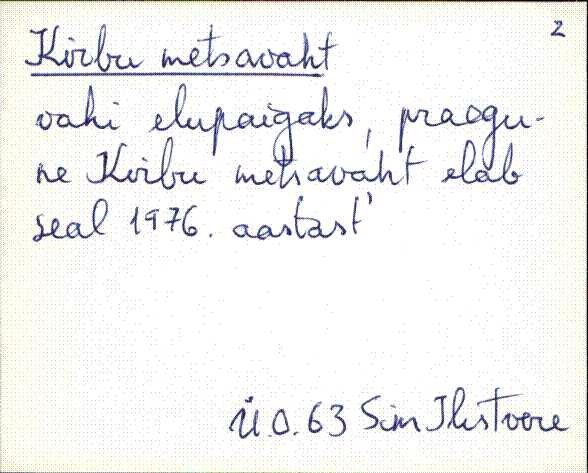 2
Kirbu metsavaht
vahi elupaigaks, praegu-
ne Kirbu metsavaht elab
seal 1976. aastast'
Ü.O. 63 Sim Ilistvere